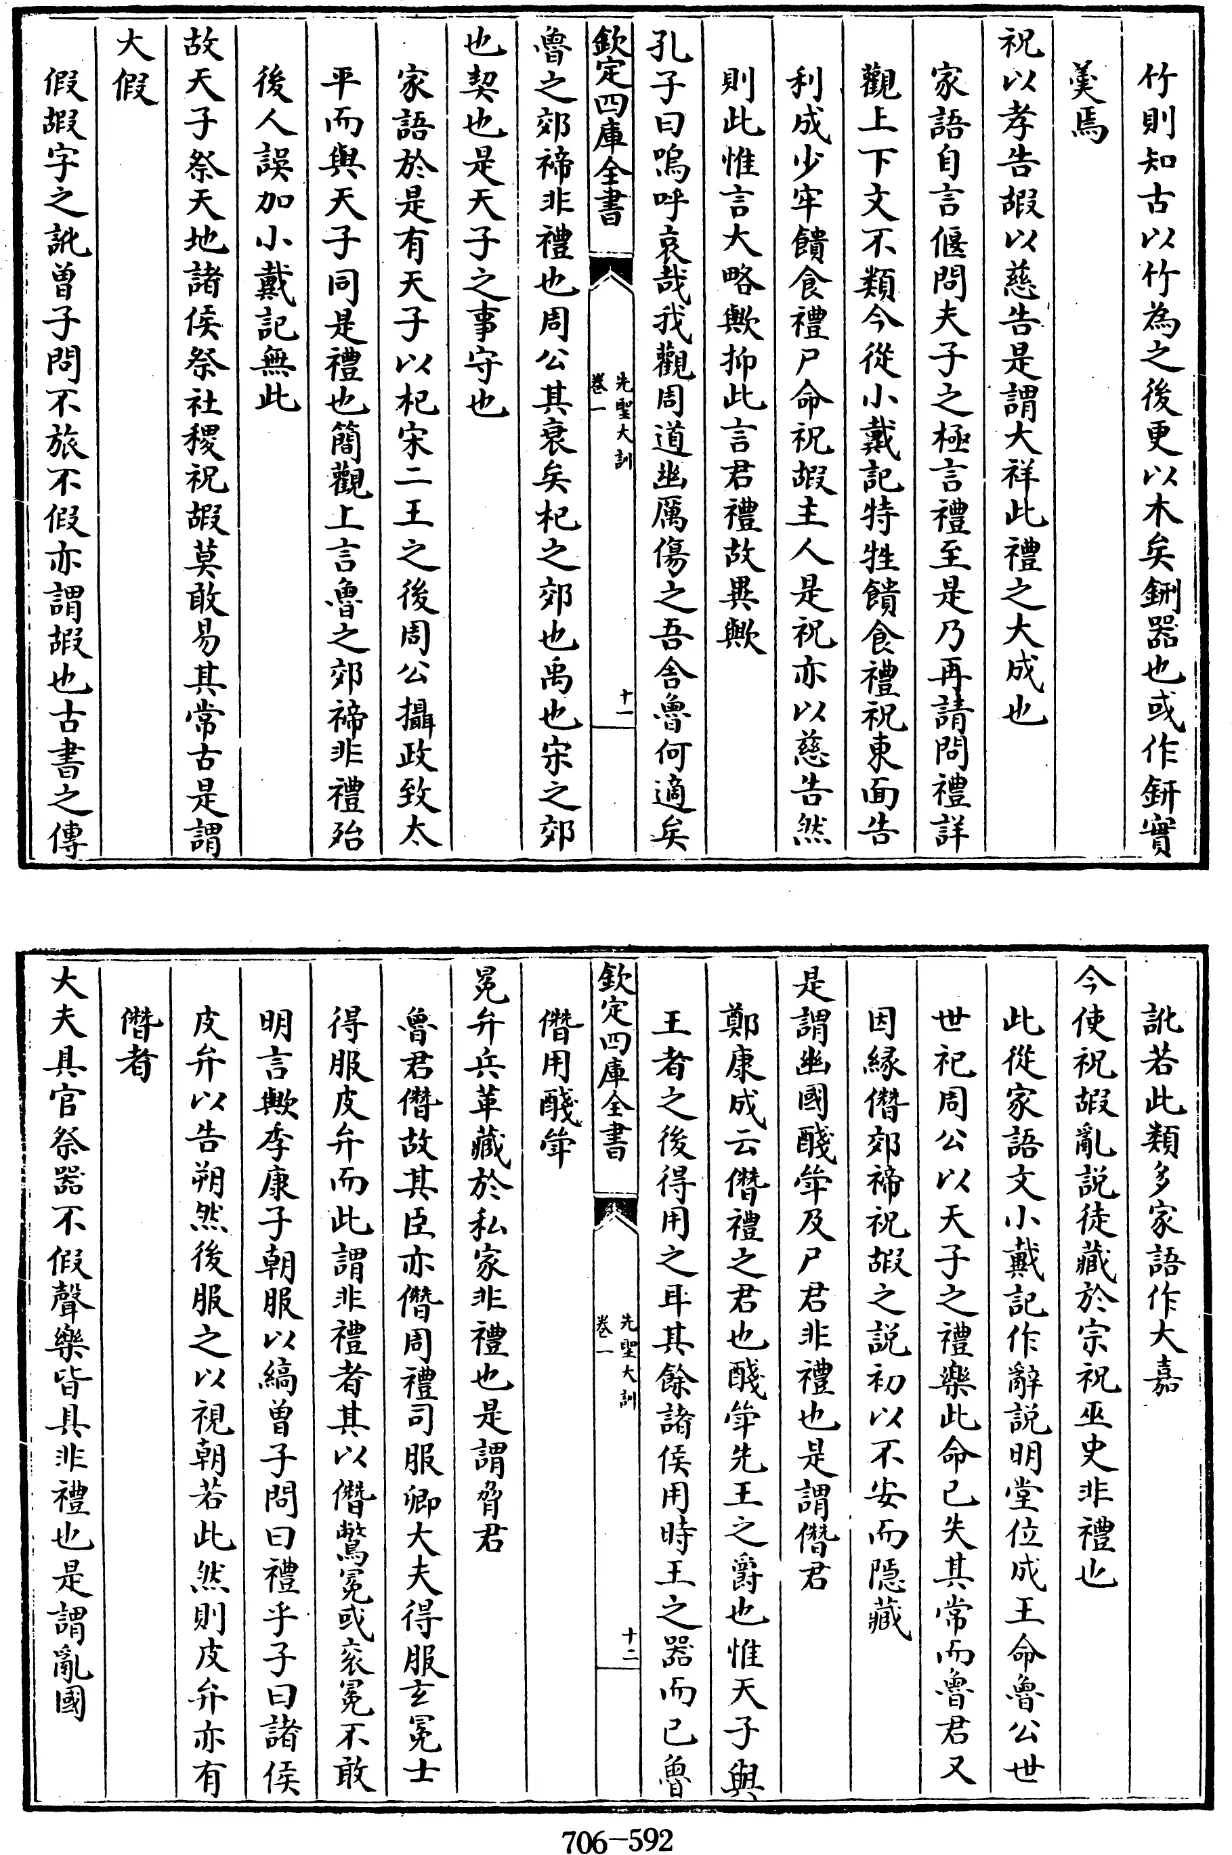 竹則知古以竹為之後更以木矣鉶器也或作鈃實
羹焉
祝以孝告嘏以慈告是謂大祥此禮之大成也
家語自言偃問夫子之極言禮至是乃再請問禮詳
觀上下文不類今從小戴記特牲饋食禮祝東面告
利成少牢饋食禮尸命祝嘏主人是祝亦以慈告然
則此惟言大略歟抑此言君禮故異歟
孔子曰嗚呼哀哉我觀周道幽厲傷之吾舍魯何適矣
欽定四庫全書
先聖大訓
卷一
十一
魯之郊禘非禮也周公其衰矣杞之郊也禹也宋之郊
也契也是天子之事守也
家語於是有天子以杞宋二王之後周公攝政致太
平而與天子同是禮也簡觀上言魯之郊禘非禮殆
後人誤加小戴記無此
故天子祭天地諸侯祭社稷祝嘏莫敢易其常古是謂
大假
假嘏字之訛曾子問不旅不假亦謂嘏也古書之傳
訛若此類多家語作大嘉
今使祝嘏亂說徒藏於宗祝巫史非禮也
此從家語文小戴記作辭說明堂位成王命魯公世
世祀周公以天子之禮樂此命已失其常而魯君又
因緣僭郊禘祝嘏之說初以不安而隱藏
是謂幽國醆斝及尸君非禮也是謂僭君
鄭康成云僭禮之君也醆斝先王之爵也惟天子與
王者之後得用之耳其餘諸侯用時王之器而已魯
欽定四庫全書
先聖大訓
卷一
十二
僭用醆斝
冕弁兵革藏於私家非禮也是謂脅君
魯君僭故其臣亦僭周禮司服卿大夫得服玄冕士
得服皮弁而此謂非禮者其以僭鷩冕或衮冕不敢
明言歟季康子朝服以縞曾子問曰禮乎子曰諸侯
皮弁以告朔然後服之以視朝若此然則皮弁亦有
僭者
大夫具官祭器不假聲樂皆具非禮也是謂亂國
706-592